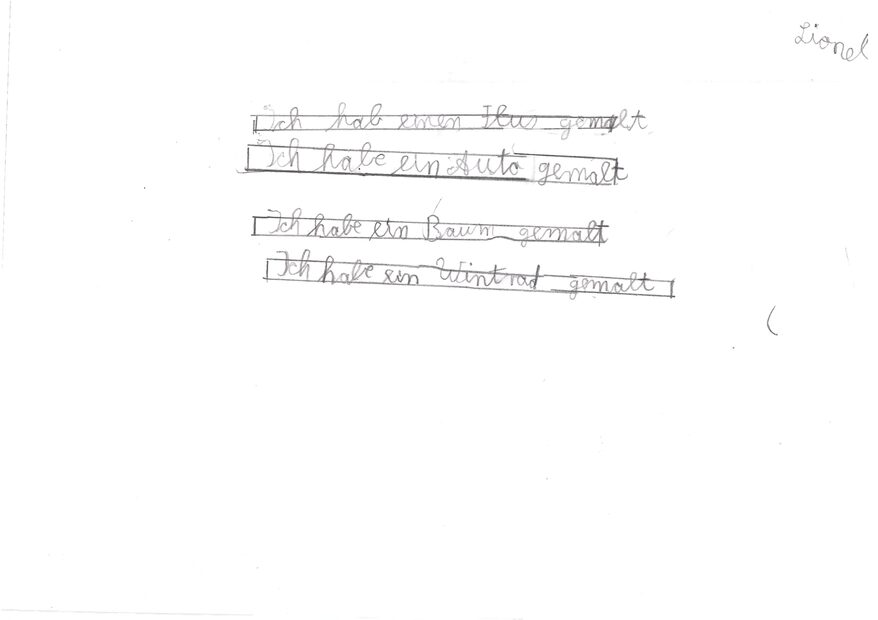 Lionel
Ich hab einen gemalt
Ich habe ein Auto gemalt
Ich habe ein Baum gemalt
Ich habe ein Wintrad gemalt